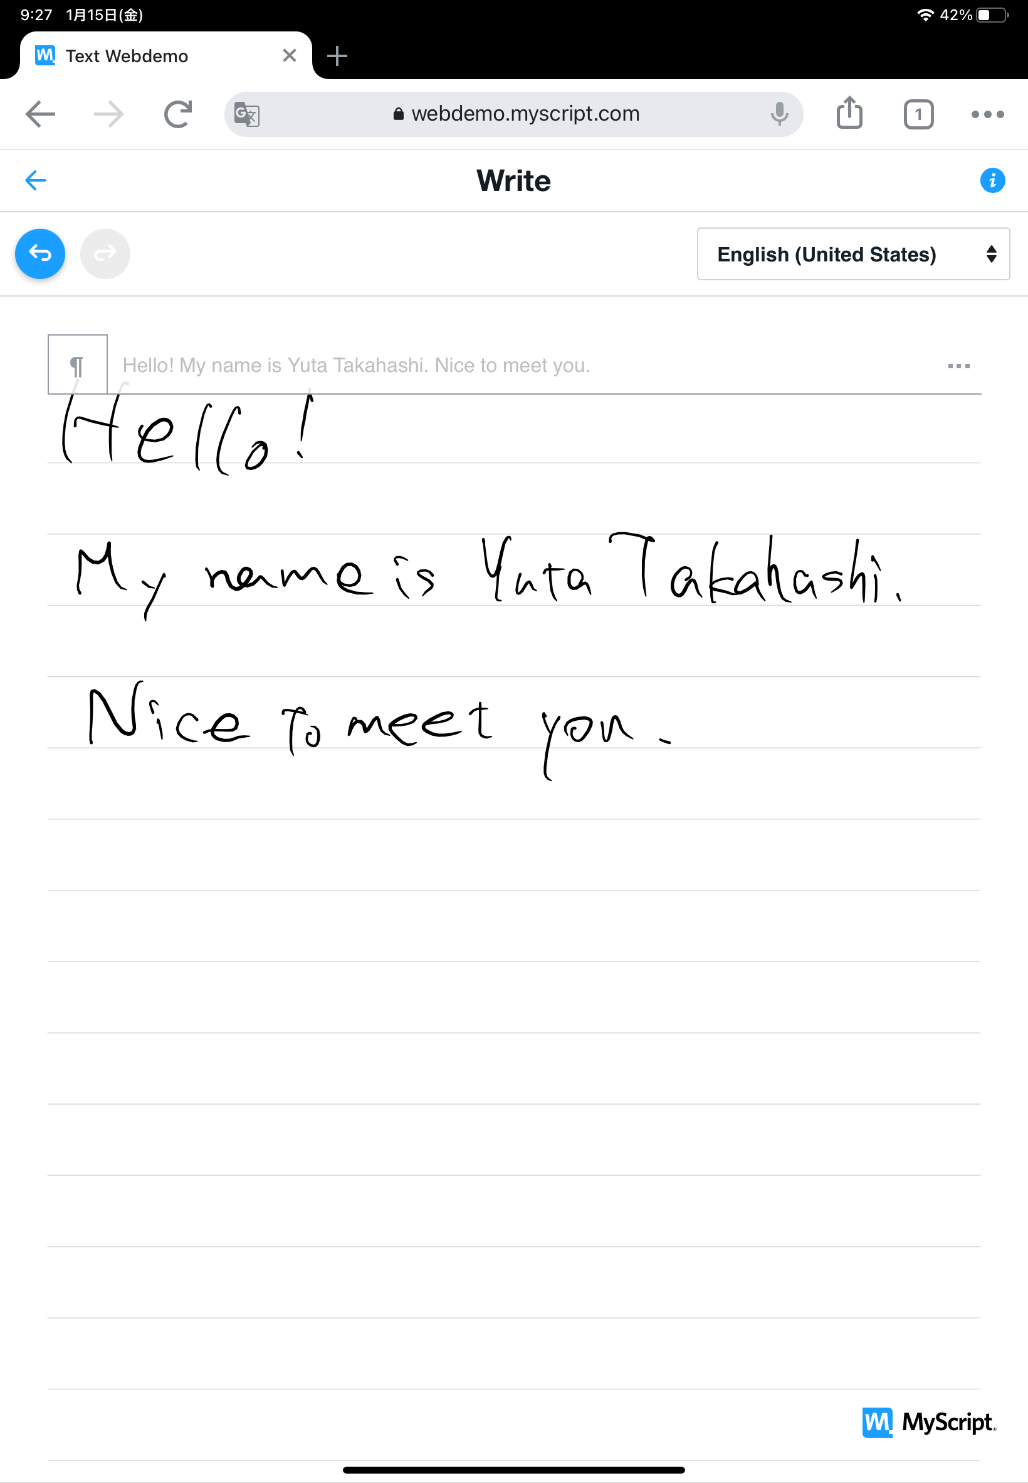 9:27 1月15日(金) 42%
Text Webdemo
webdemo.myscript.com 1
Write
English (United States)
¶ Hello! My name is Yuta Takahashi. Nice to meet you. ...
Hello!
My name is Yuta Takahashi.
Nice to meet you.
MyScript.